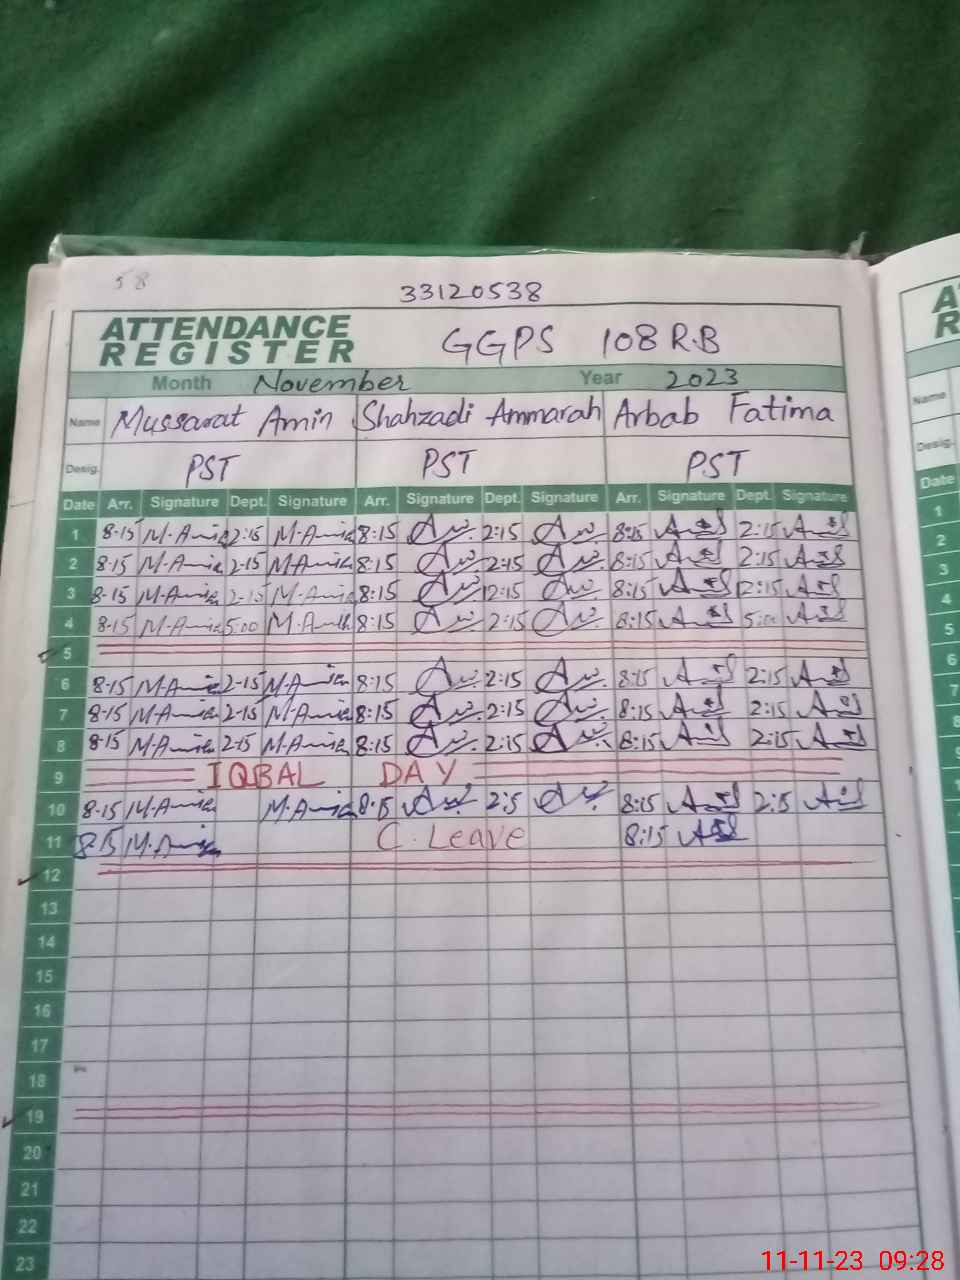 58
33120538
ATTENDANCE REGISTER GGPS 108 R.B
Month November Year 2023
Name Mussarat Amin Shahzadi Ammarah Arbab Fatima
Desig. PST PST PST
Date Arr. Signature Dept. Signature Arr. Signature Dept. Signature Arr. Signature Dept. Signature
1 8-15 M-Amin 2:15 M-Amin 8:15 2:15 8:15 2:15
2 8:15 M-Amin 2-15 M-Amin 8:15 2:15 8:15 2:15
3 8-15 M-Amin 2-15 M-Amin 8:15 2:15 8:15 2:15
4 8-15 M-Amin 5:00 M-Amin 8:15 2:15 8:15 5:00
5
6 8-15 M-Amin 2-15 M-Amin 8:15 2:15 8:15 2:15
7 8-15 M-Amin 2-15 M-Amin 8:15 2:15 8:15 2:15
8 8-15 M-Amin 2-15 M-Amin 8:15 2:15 8:15 2:15
9 IQBAL DAY
10 8-15 M-Amin M-Amin 8:15 2:5 8:15 2:15
11 8-15 M-Amin C. Leave 8:15
12
13
14
15
16
17
18
19
20
21
22
23
A
R
Name
Desig
Date
1
2
3
4
5
6
7
8
9
11-11-23 09:28